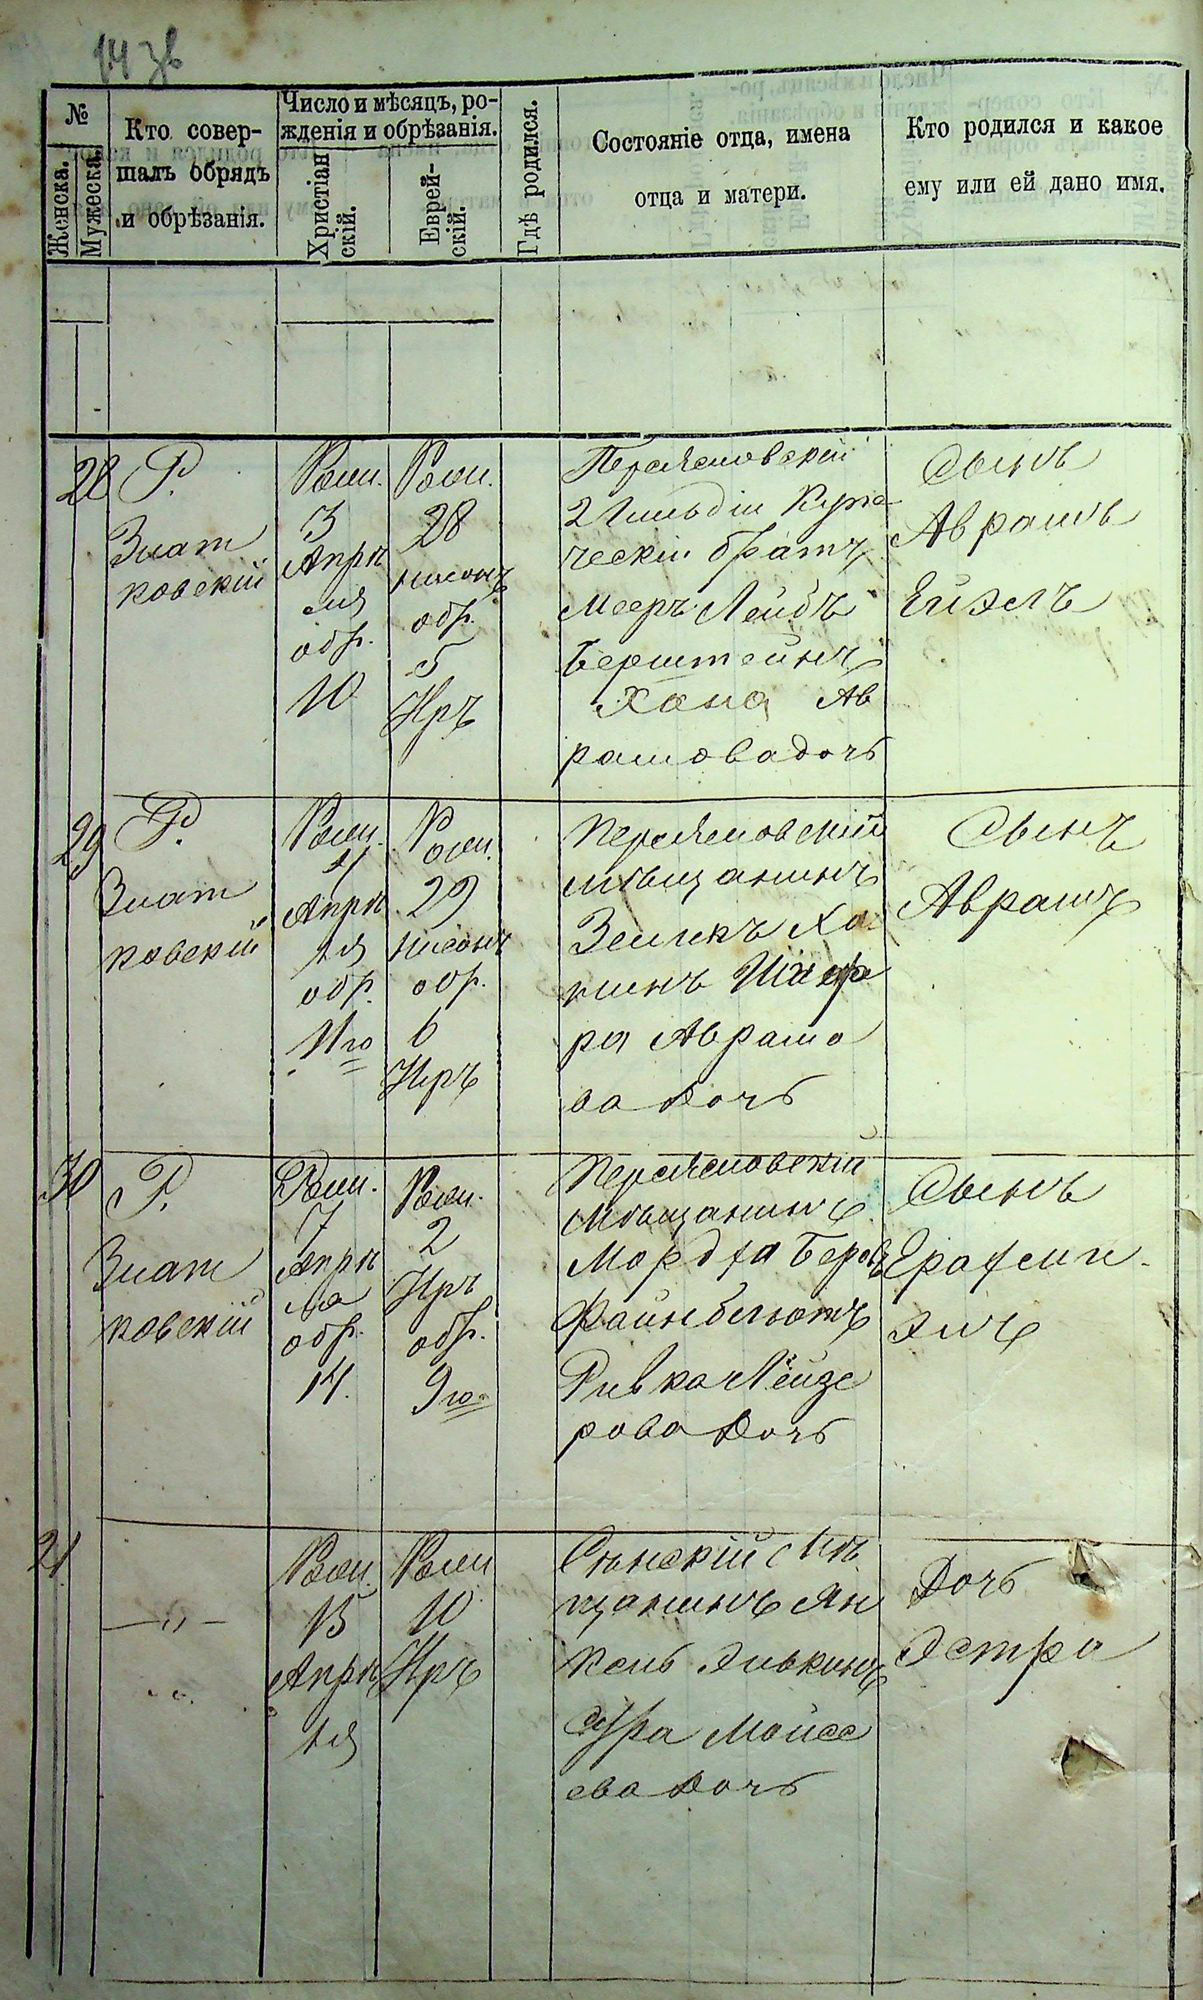 №
Женска.
Мужеска.
Кто совер-
шалъ обрядъ
и обрѣзанія.
Число и мѣсяцъ, ро-
жденія и обрѣзанія.
Христіан
скій.
Еврей-
скій.
Гдѣ родился.
Состояніе отца, имена
отца и матери.
Кто родился и какое
ему или ей дано имя.
28
Р.
Злат
ковскій
Роди.
3
Апрѣ
ля
обр.
10
Роди.
28
нисонъ
обр.
5
Иръ
Переяславскій
2 Гильдіи Купе
ческій братъ
Мееръ Лейбъ
Берштейнъ
Хана Ав
рамова дочь
Сынъ
Аврамъ
29
Р.
Злат
ковскій
Роди.
4
Апрѣ
ля
обр.
11го
Роди.
29
нисонъ
обр.
6
Иръ
Переяславскій
мѣщанинъ
ра Аврамо
ва дочь
Сынъ
Аврамъ
30
Р.
Злат
ковскій
Роди.
7
Апрѣ
ля
обр.
14.
Роди.
2
Иръ
обр.
9го
Переяславскій
мѣщанинъ
Мордха Беровъ
Ривка Лейзе
рова дочь
Сынъ
21
—„—
Роди.
15
Апрѣ
ля
Роди
10
Иръ
щанинъ Ян
кель Элькинъ
Сура Мойсе
ева дочь
Дочь
Эстра